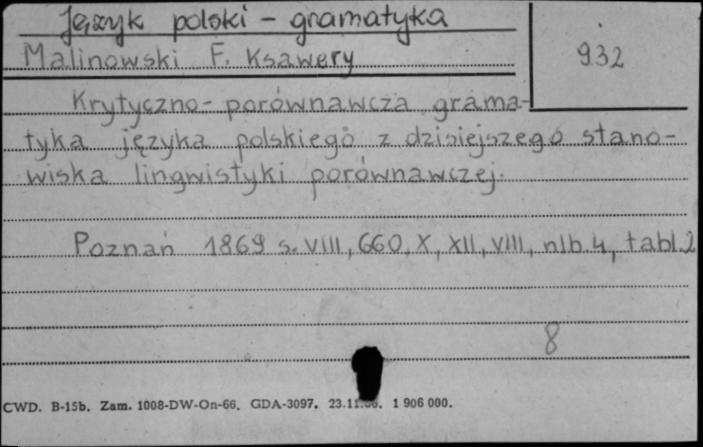 Język polski - gramatyka
Malinowski F. Ksawery
932
Krytyczno-porównawcza grama-
tyka języka polskiego z dzisiejszego stano-
wiska lingwistyki porównawczej.
Poznań 1869 s. VIII, 660, X, XII, VIII, nlb. 4, tabl. 2
8
CWD. B-15b. Zam. 1008-DW-On-66. GDA-3097. 1 906 000.